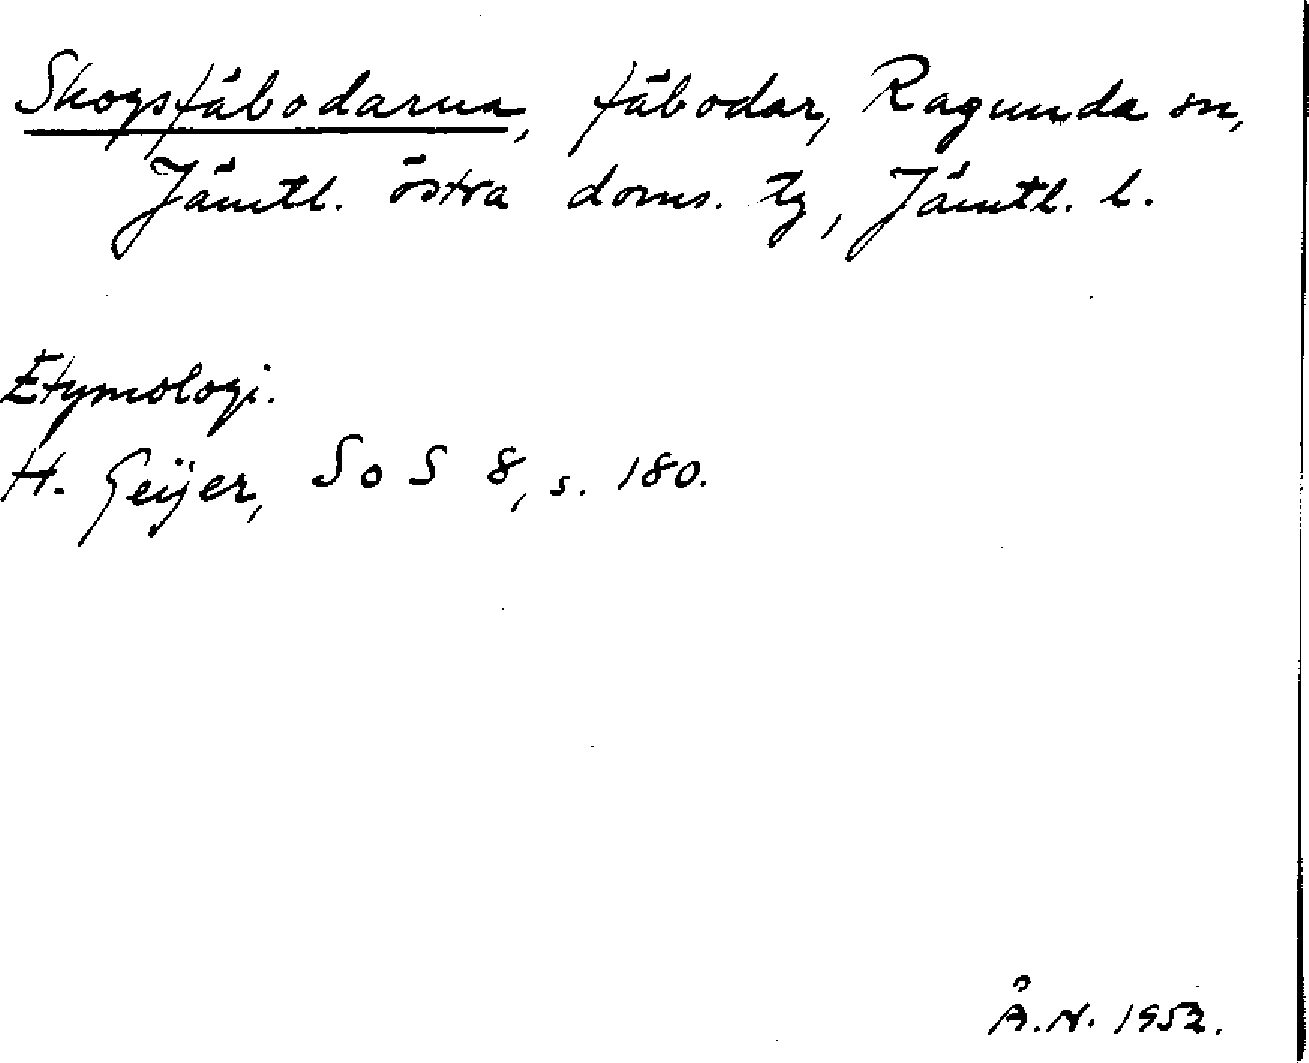 Skogsfäbodarna, fäbodar, Ragunda sn,
Jämtl. östra doms. tg, Jämtl. l.
Etymologi.
H. Geijer, SoS 8, s. 180.
Å.N. 1952.